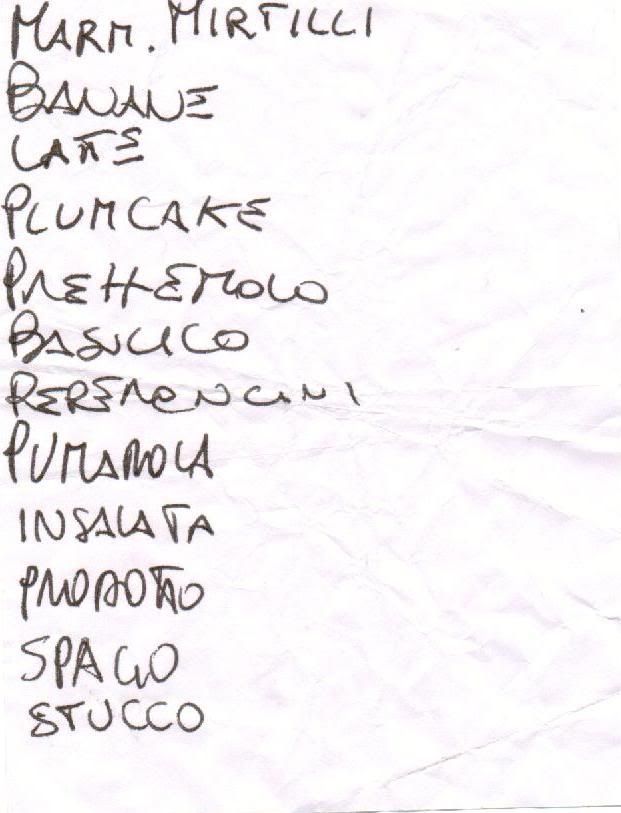 MARM. MIRTILLI
BANANE
LATTE
PLUMCAKE
PREZZEMOLO
BASILICO
PEPERONCINI
PUMAROLA
INSALATA
SPAGO
STUCCO